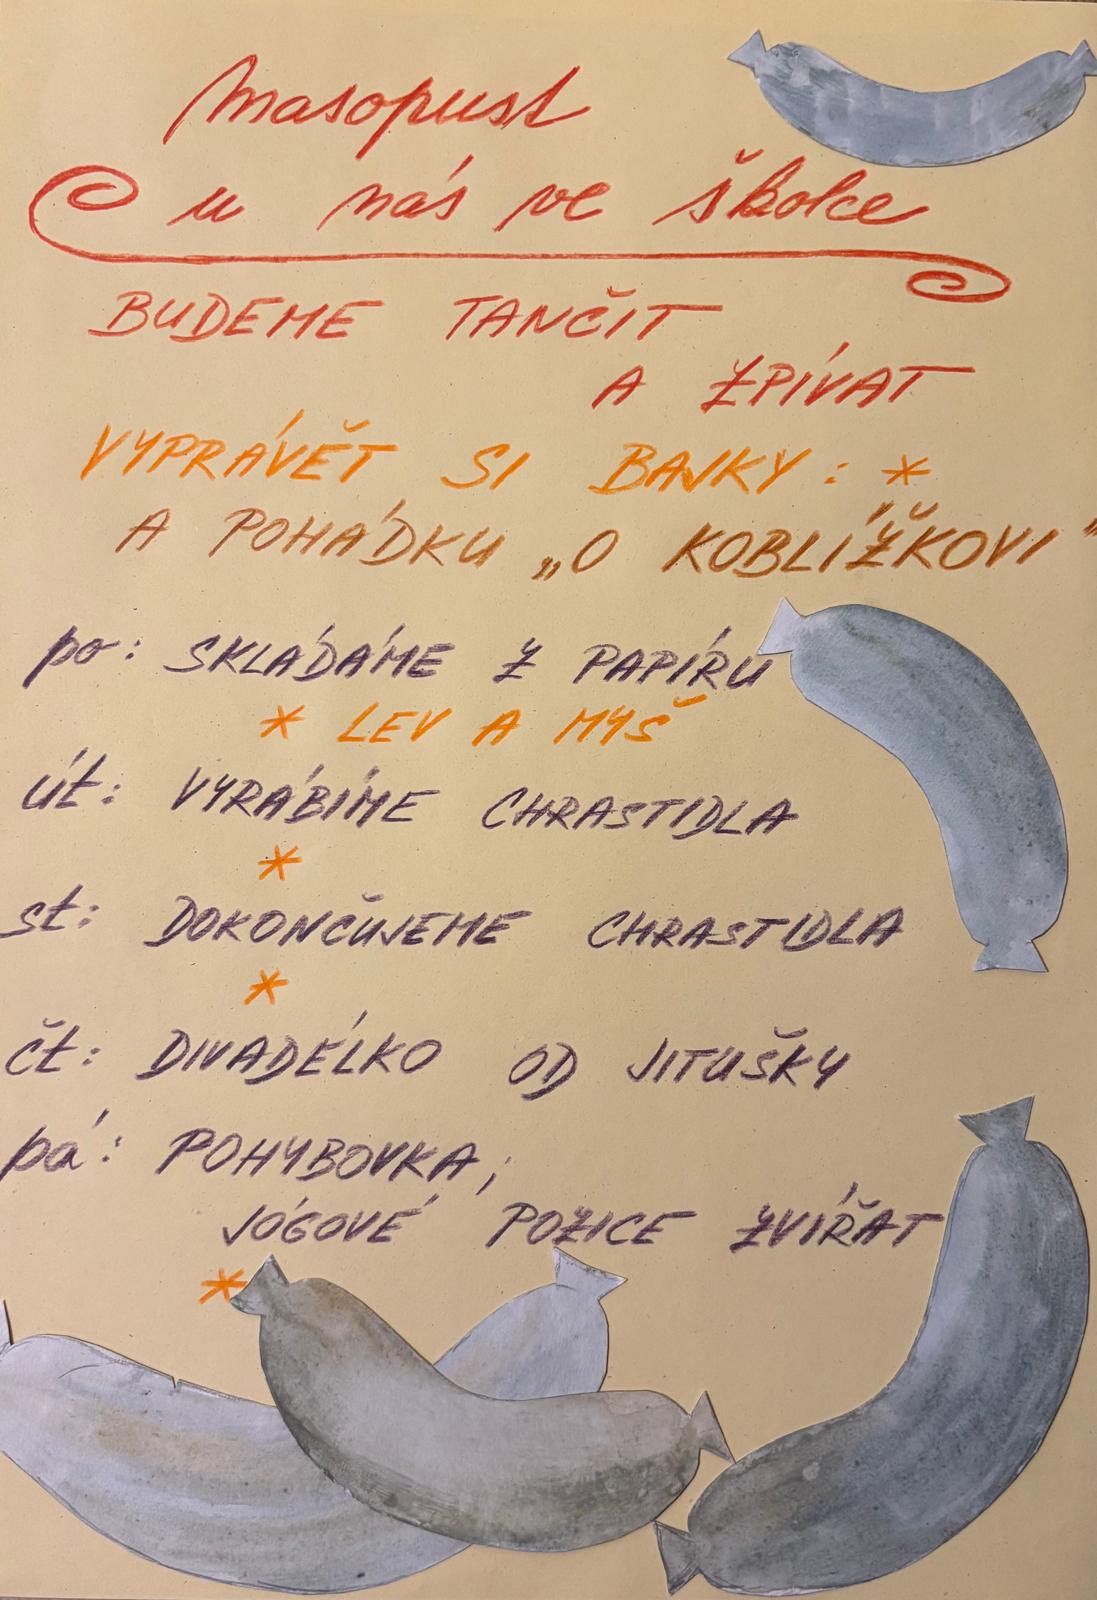 Masopust
u nás ve školce
BUDEME TANČIT
A ZPÍVAT
VYPRÁVĚT SI BAJKY: *
A POHÁDKU „O KOBLÍŽKOVI"
po: SKLÁDÁME Z PAPÍRU
* LEV A MYŠ
út: VYRÁBÍME CHRASTIDLA
*
st: DOKONČUJEME CHRASTIDLA
*
čt: DIVADÉLKO OD JITUŠKY
pá: POHYBOVKA,
JÓGOVÉ POZICE ZVÍŘAT
*